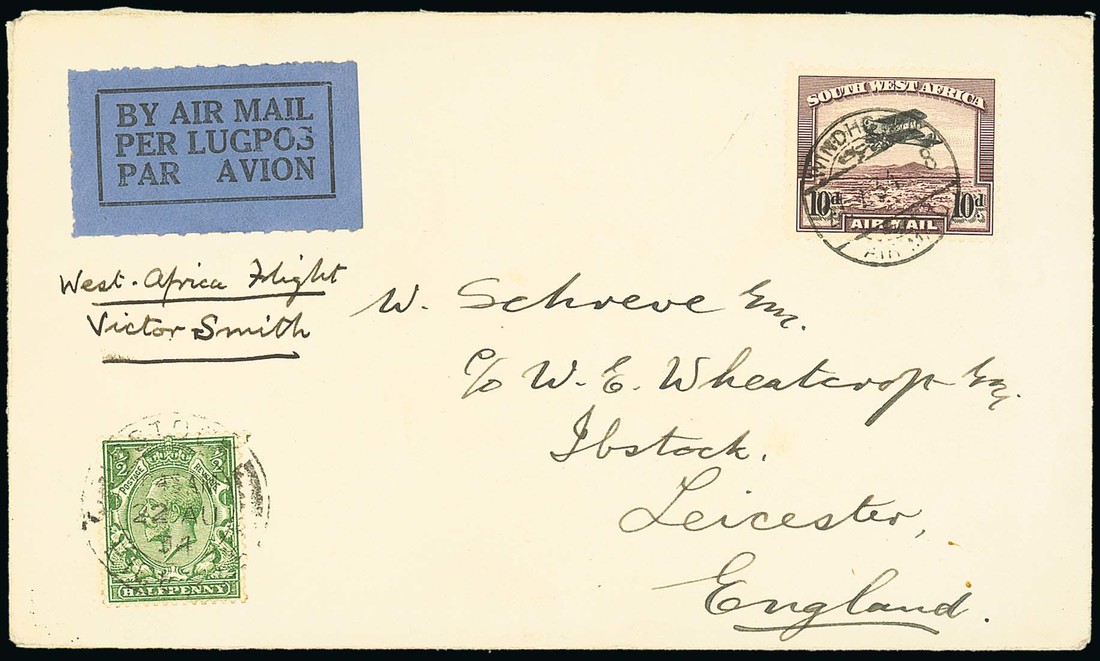 BY AIR MAIL
PER LUGPOS
PAR AVION
SOUTH WEST AFRICA
10d. 10d.
AIR MAIL
West. Africa Flight
Victor Smith
W. Schreve Esq.
c/o W. E. Wheatcrop Esq.
Ibstock.
Leicester,
England.
½ ½
POSTAGE REVENUE
22 AU
HALFPENNY